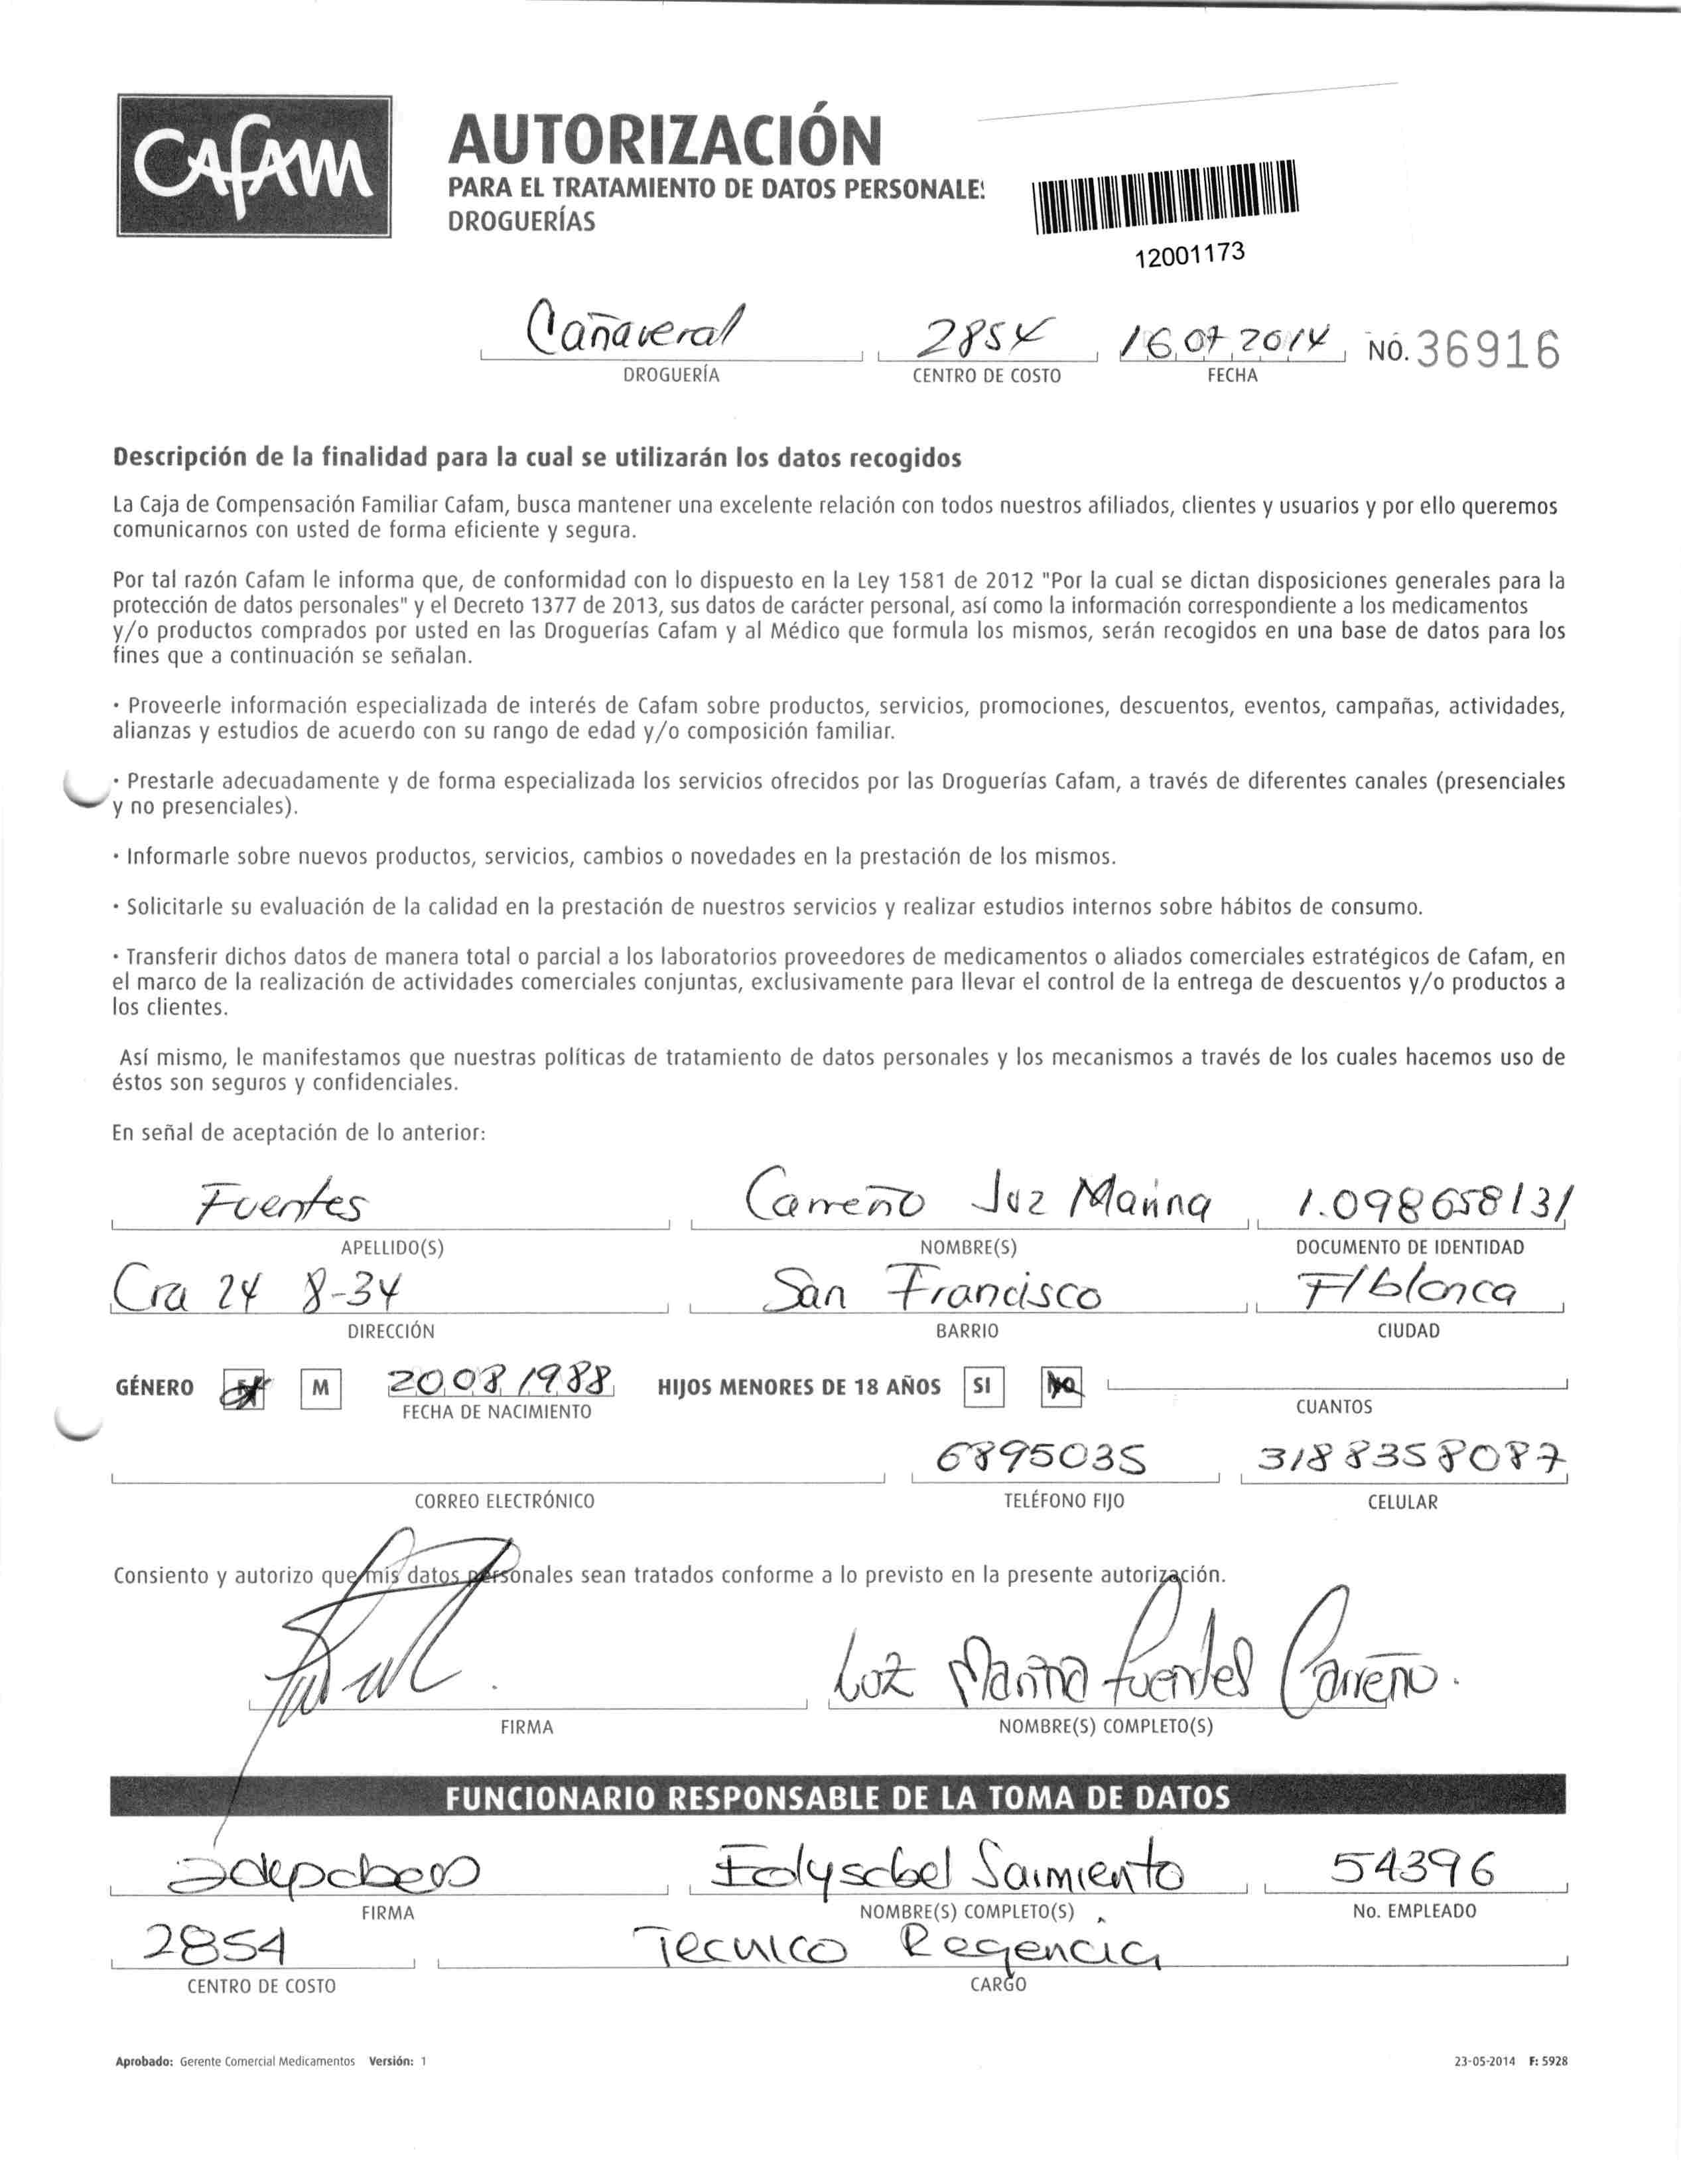 CAFAM
AUTORIZACIÓN
PARA EL TRATAMIENTO DE DATOS PERSONALE
DROGUERÍAS
12001173
Cañaveral 2854 16 07 2014 NO. 36916
DROGUERÍA CENTRO DE COSTO FECHA
Descripción de la finalidad para la cual se utilizarán los datos recogidos
La Caja de Compensación Familiar Cafam, busca mantener una excelente relación con todos nuestros afiliados, clientes y usuarios y por ello queremos
comunicarnos con usted de forma eficiente y segura.
Por tal razón Cafam le informa que, de conformidad con lo dispuesto en la Ley 1581 de 2012 "Por la cual se dictan disposiciones generales para la
protección de datos personales" y el Decreto 1377 de 2013, sus datos de carácter personal, así como la información correspondiente a los medicamentos
y/o productos comprados por usted en las Droguerías Cafam y al Médico que formula los mismos, serán recogidos en una base de datos para los
fines que a continuación se señalan.
· Proveerle información especializada de interés de Cafam sobre productos, servicios, promociones, descuentos, eventos, campañas, actividades,
alianzas y estudios de acuerdo con su rango de edad y/o composición familiar.
· Prestarle adecuadamente y de forma especializada los servicios ofrecidos por las Droguerías Cafam, a través de diferentes canales (presenciales
y no presenciales).
· Informarle sobre nuevos productos, servicios, cambios o novedades en la prestación de los mismos.
· Solicitarle su evaluación de la calidad en la prestación de nuestros servicios y realizar estudios internos sobre hábitos de consumo.
· Transferir dichos datos de manera total o parcial a los laboratorios proveedores de medicamentos o aliados comerciales estratégicos de Cafam, en
el marco de la realización de actividades comerciales conjuntas, exclusivamente para llevar el control de la entrega de descuentos y/o productos a
los clientes.
Así mismo, le manifestamos que nuestras políticas de tratamiento de datos personales y los mecanismos a través de los cuales hacemos uso de
éstos son seguros y confidenciales.
En señal de aceptación de lo anterior:
Fuentes Carreño Luz Marina 1.098658131
APELLIDO(S) NOMBRE(S) DOCUMENTO DE IDENTIDAD
Cra 24 8-34 San Francisco F/blanca
DIRECCIÓN BARRIO CIUDAD
GÉNERO F M 20 08 1988 HIJOS MENORES DE 18 AÑOS SI NO
FECHA DE NACIMIENTO CUANTOS
6895035 3188358087
CORREO ELECTRÓNICO TELÉFONO FIJO CELULAR
Consiento y autorizo que mis datos personales sean tratados conforme a lo previsto en la presente autorización.
Luz Marina Fuentes Carreño.
FIRMA NOMBRE(S) COMPLETO(S)
FUNCIONARIO RESPONSABLE DE LA TOMA DE DATOS
Sarmiento 54396
FIRMA NOMBRE(S) COMPLETO(S) No. EMPLEADO
2854 Tecnico Regencia
CENTRO DE COSTO CARGO
Aprobado: Gerente Comercial Medicamentos Versión: 1 23-05-2014 F: 5928